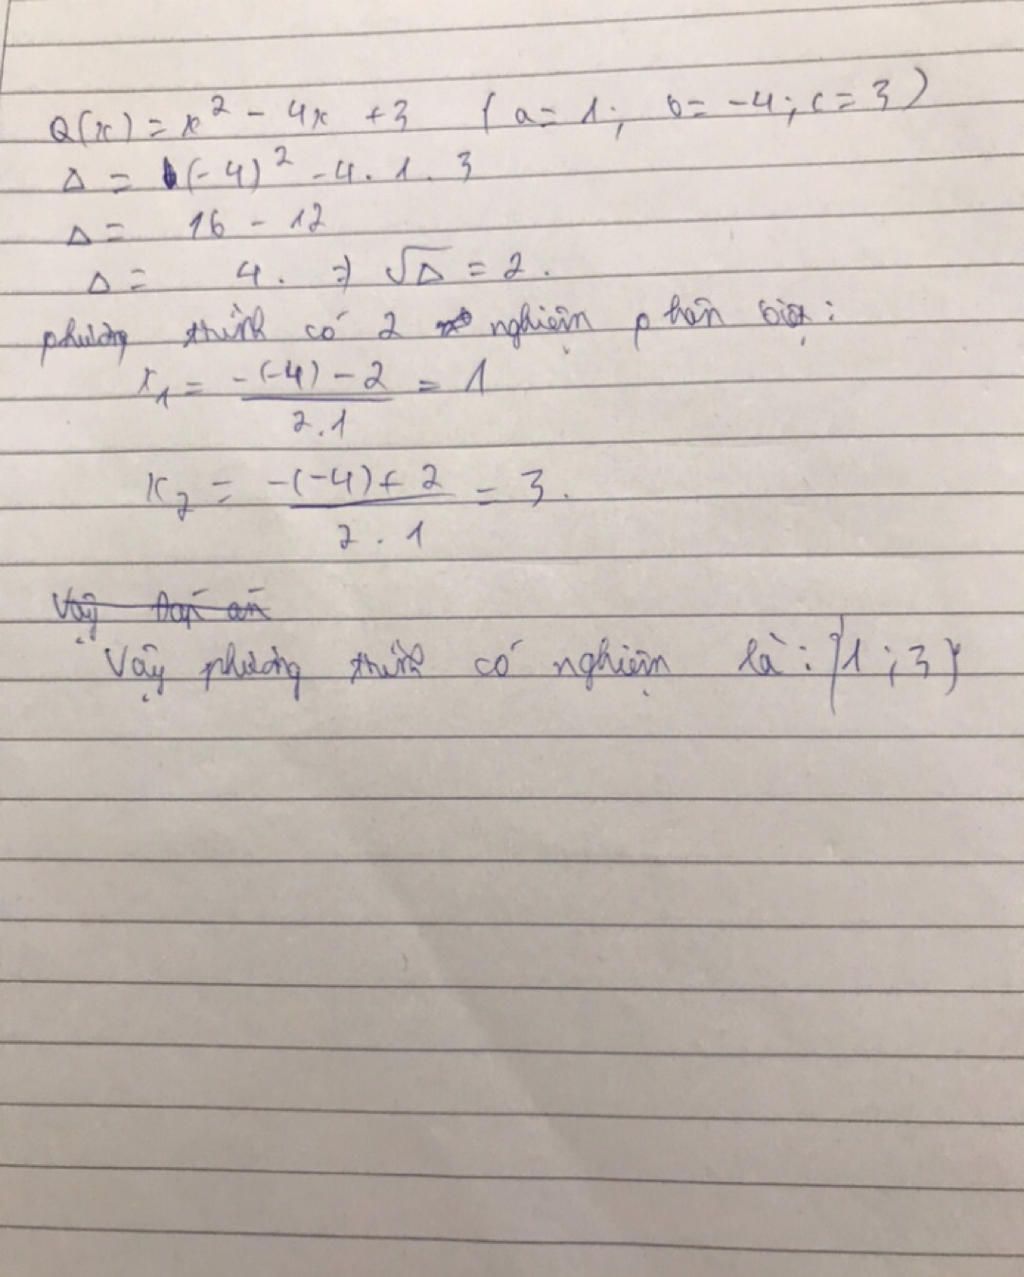 Q(x) = x² - 4x + 3 (a = 1; b = -4; c = 3)
Δ = (-4)² - 4 . 1 . 3
Δ = 16 - 12
Δ = 4. ⇒ √Δ = 2.
phương trình có 2 nghiệm phân biệt:
x₁ = -(-4) - 2 / 2.1 = 1
x₂ = -(-4) + 2 / 2 . 1 = 3.
Vậy Đáp án
Vậy phương trình có nghiệm là: {1 ; 3}